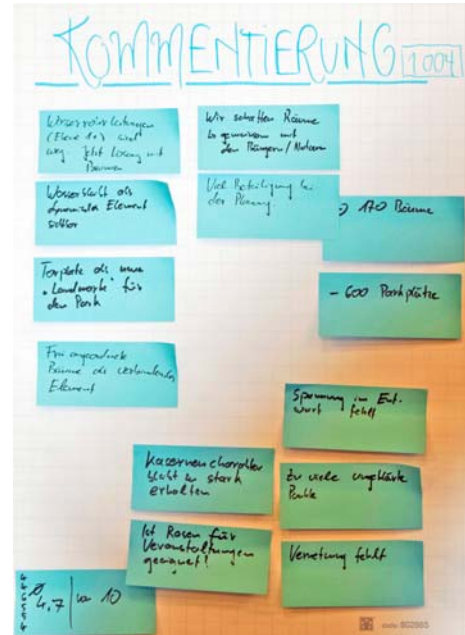 KOMMENTIERUNG 1004
(Ebene 1+) wird
weg. Jetzt Lösung mit
Bäumen
Wasser bleibt als
dynamisches Element
Torplatz als neue
"Landmarke" für
den Park
Frei angeordnete
Bäume als verbindendes
Element
Wir schaffen Räume
gemeinsam mit
den Bürgern/Nutzern
Viel Beteiligung bei
der Planung.
170 Bäume
- 600 Parkplätze
Spannung im Ent-
wurf fehlt
Kasernencharakter
bleibt zu stark
erhalten
Zu viele ungeklärte
Punkte
Ist Rasen für
Veranstaltungen
geeignet?
Vernetzung fehlt
4,7 | von 10
code: 802865